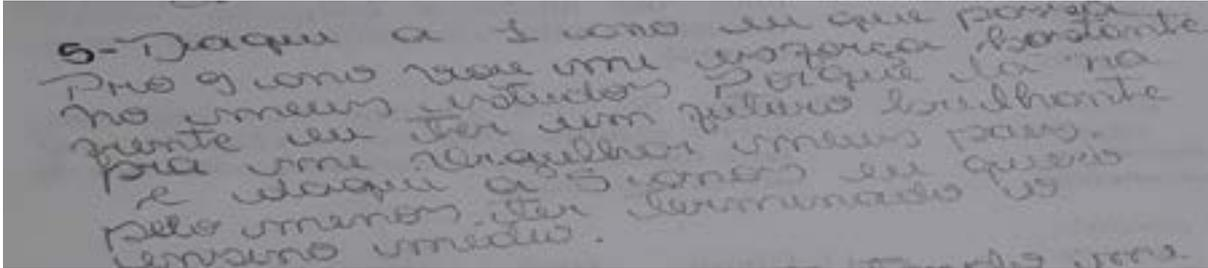 5-Daqui a 1 ano eu que possa
Pro 9 ano vou mi esforça bastante
no meus estudos Porque la na
frente eu ter um futuro brilhante
pra mi orgulhar meus pais.
e daqui a 5 anos eu quero
pelo menos ter terminado o
ensino medio.